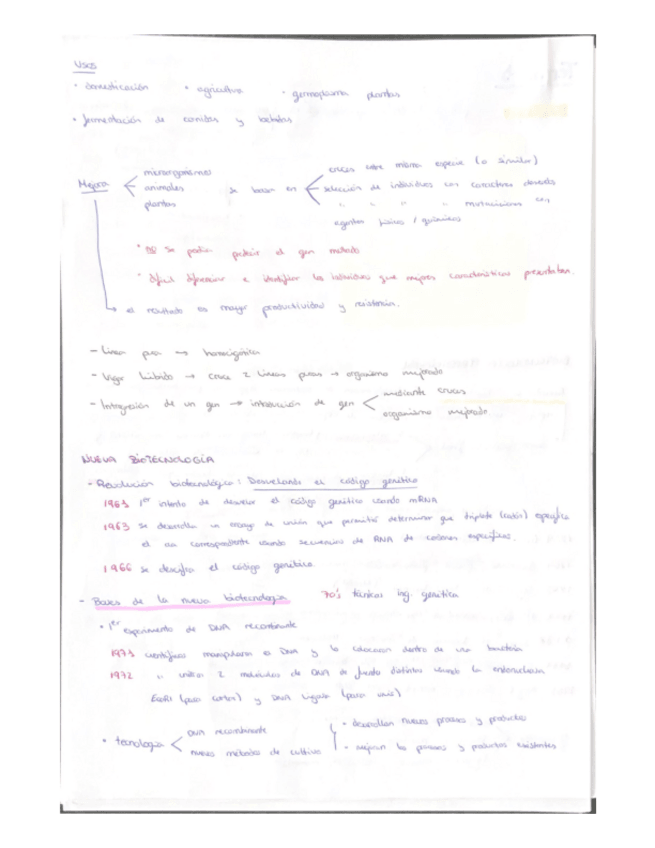 Usos
· domesticación · agricultura · germoplasma plantas
· fermentación de comidas y bebidas
Mejora
microorganismos
animales
plantas
se basan en
cruces entre misma especie (o similar)
selección de individuos con caracteres deseados
" " " mutaciones con
agentes físicos / químicos
· no se podía predecir el gen mutado
· difícil diferenciar e identificar los individuos que mejores características presentaban.
el resultado es mayor productividad y resistencia.
- Línea pura → homocigótica
- Vigor híbrido → cruce 2 líneas puras → organismo mejorado
- Introgresión de un gen → introducción de gen
mediante cruces
organismo mejorado
NUEVA BIOTECNOLOGÍA
- Revolución biotecnológica: Desvelando el código genético
1961 1er intento de descifrar el código genético usando mRNA
1963 se desarrolla un ensayo de unión que permitió determinar que triplete (codón) especifica
el aa correspondiente usando secuencias de RNA de codones específicos.
1966 se descifra el código genético
- Bases de la nueva biotecnología 70's técnicas ing. genética
· 1er experimento de DNA recombinante
1973 científicos manipularon el DNA y lo colocaron dentro de una bacteria
1972 " unieron 2 moléculas de DNA de fuentes distintas usando la endonucleasa
EcoRI (para cortar) y DNA ligasa (para unir)
· tecnología
DNA recombinante
nuevos métodos de cultivo
· desarrollan nuevos procesos y productos
· mejoran los procesos y productos existentes